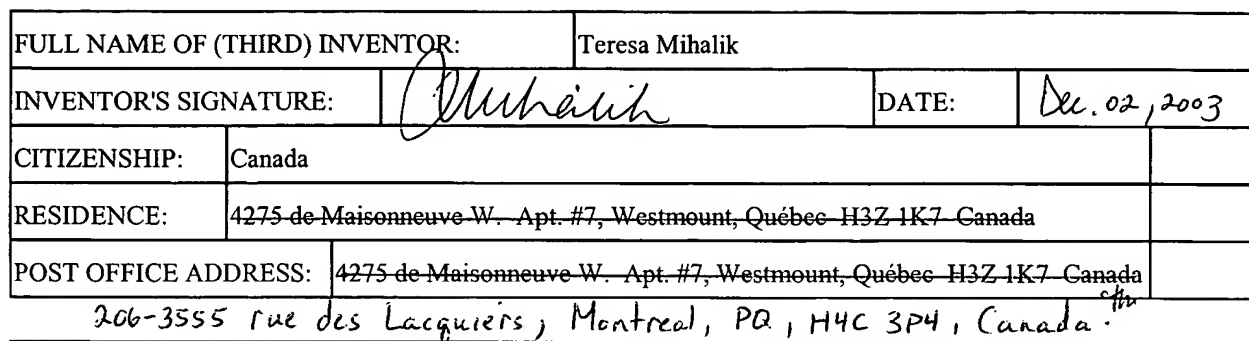 FULL NAME OF (THIRD) INVENTOR: Teresa Mihalik
INVENTOR'S SIGNATURE: Mihalik DATE: Dec. 02, 2003
CITIZENSHIP: Canada
RESIDENCE: 4275 de Maisonneuve W. Apt. #7, Westmount, Québec H3Z 1K7 Canada
POST OFFICE ADDRESS: 4275 de Maisonneuve W. Apt. #7, Westmount, Québec H3Z 1K7 Canada
206-3555 rue des Lacquiers, Montreal, PQ, H4C 3P4, Canada.